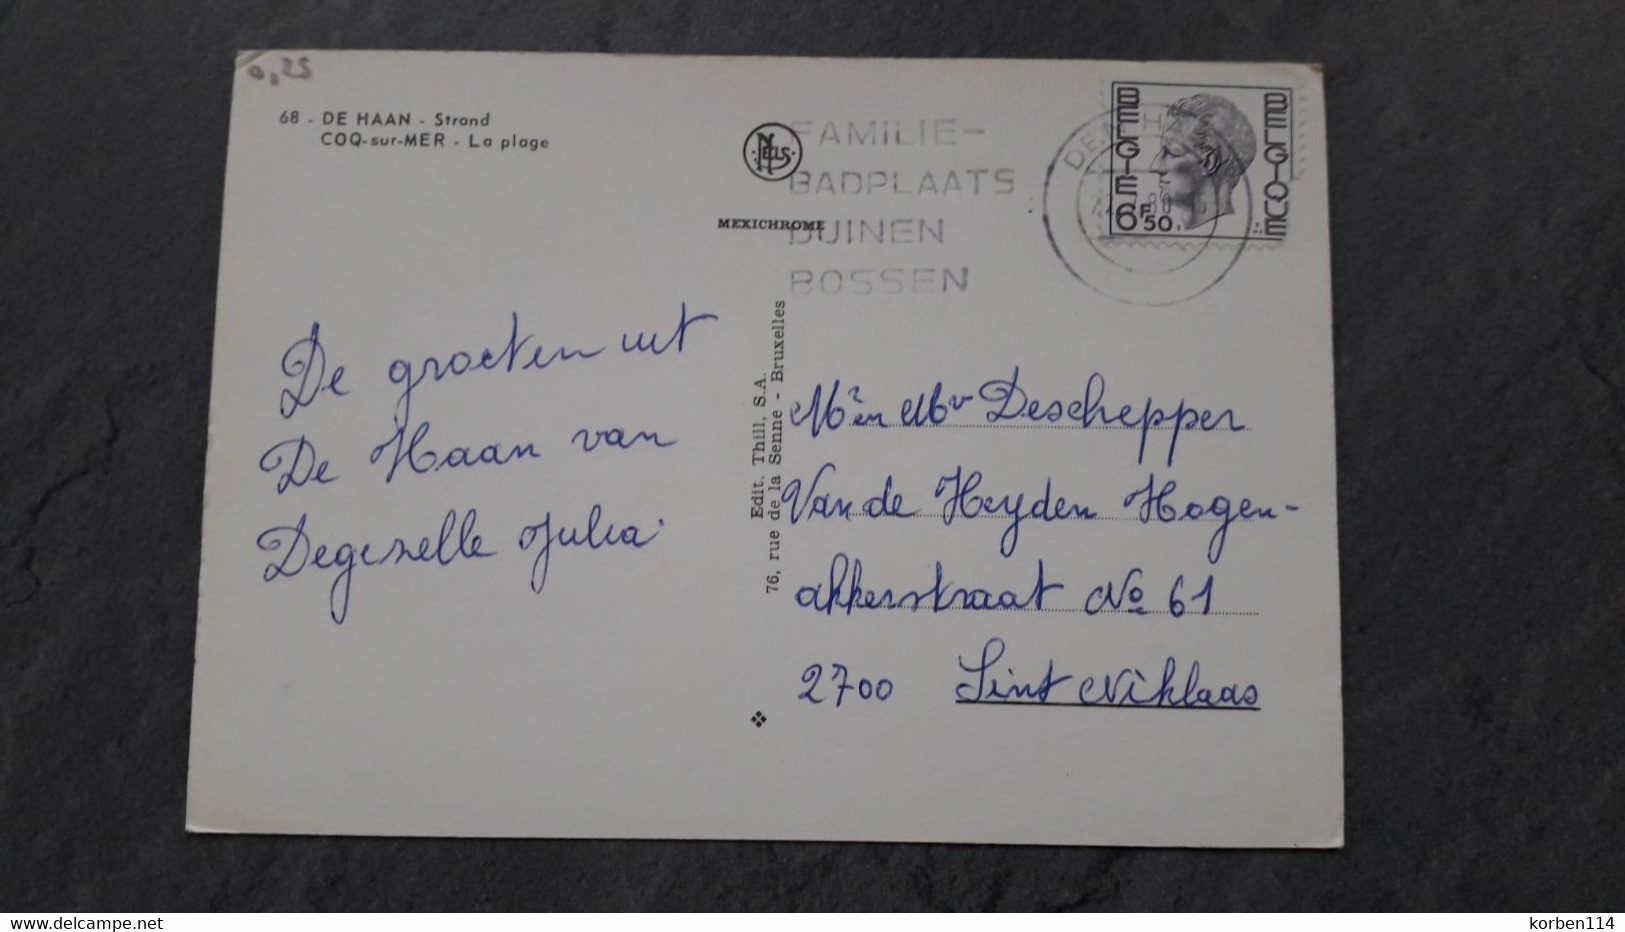 0,25
68 - DE HAAN - Strand
COQ-sur-MER - La plage
NELS
MEXICHROME
FAMILIE-
BADPLAATS
DUINEN
BOSSEN
DE HAAN
BELGIE
BELGIQUE
6F50
De groeten uit
De Haan van
Degezelle Julia
Edit. Thill, S.A.
76, rue de la Senne - Bruxelles
Mr en Mv Deschepper
Van de Heyden Hogen-
akkerstraat No 61
2700 Sint Niklaas
delcampe.net
korben114